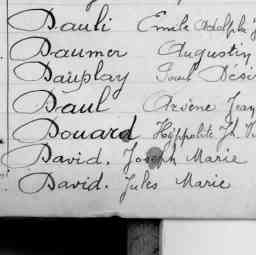 Dauli Emile Adolphe
Daumer Augustin
Dauplay Paul Dési
Daul Arsène Jean
Douard Hippolite Jh. V
David. Joseph Marie
David. Jules Marie